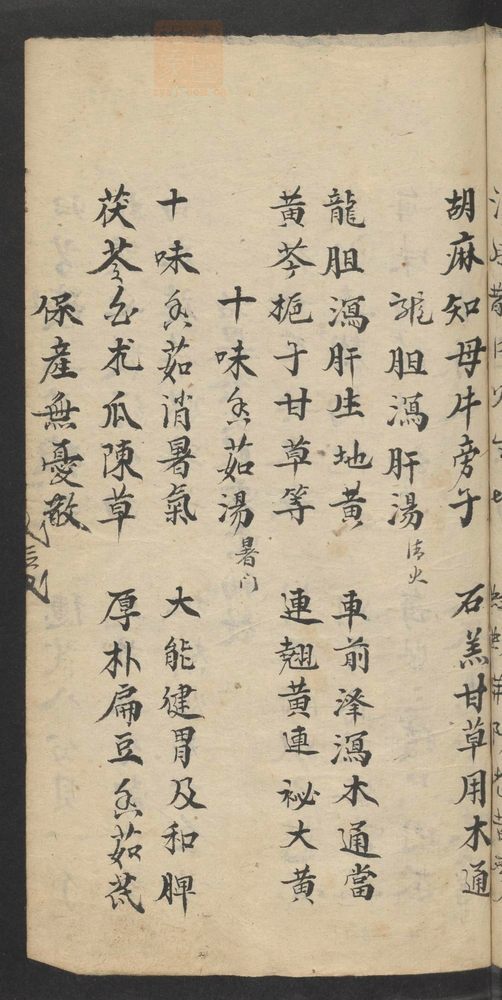 胡麻知母牛旁子　石羔甘草用木通
龍胆瀉肝湯 清火
龍胆瀉肝生地黄　車前泽瀉木通當
黄芩梔子甘草等　連翹黄連祕大黄
十味香茹湯 暑门
十味香茹消暑氣　大能健胃及和脾
茯苓白朮瓜陳草　厚朴扁豆香茹芪
保產無憂散